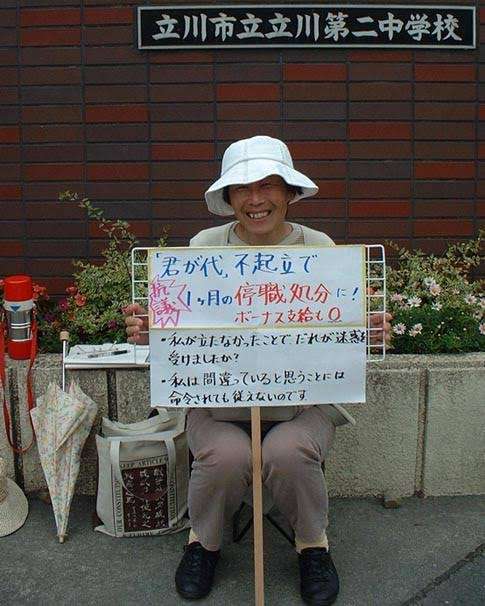 立川市立立川第二中学校
「君が代」不起立で
抗議
1ヶ月の停職処分に!
ボーナス支給も0
・私が立たなかったことで、だれが迷惑を
受けましたか?
・私は間違っていると思うことには
命令されても従えないのです
ARTICLE